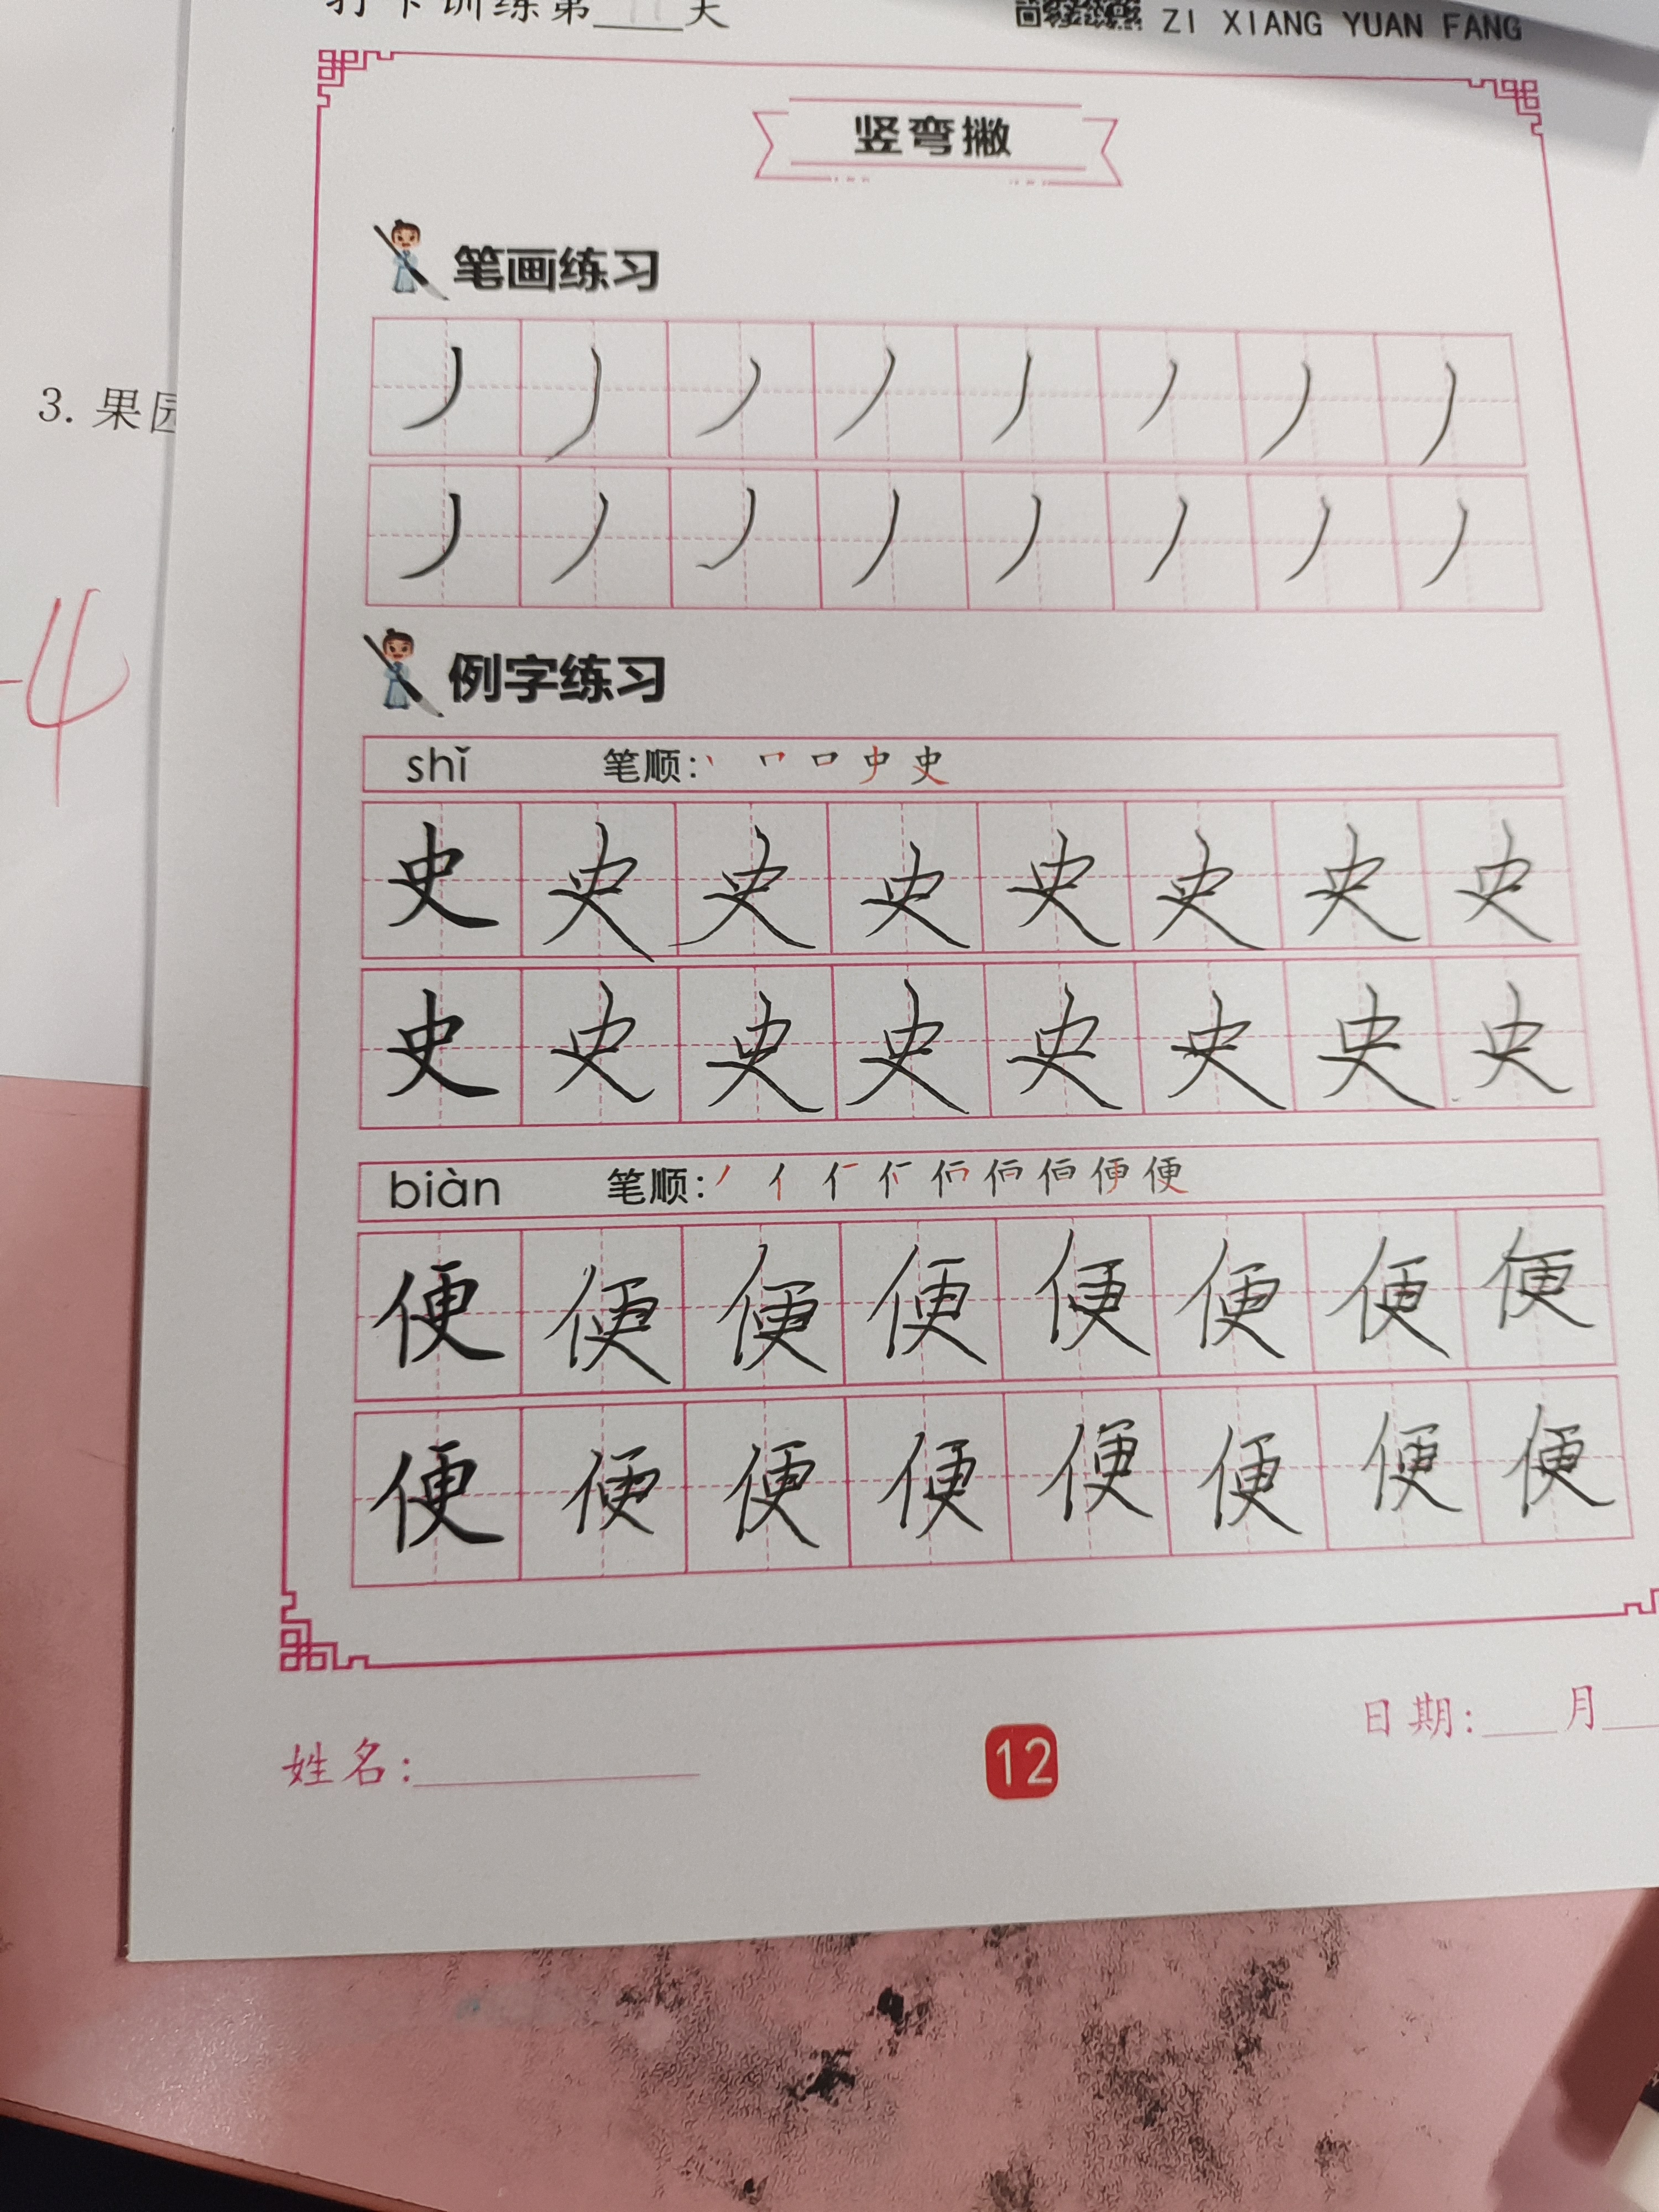 打卡训练第11天
ZI XIANG YUAN FANG
竖弯撇
笔画练习
3. 果园
丿 丿 丿 丿 丿 丿 丿 丿
丿 丿 丿 丿 丿 丿 丿 丿
-4
例字练习
shǐ 笔顺:
史 史 史 史 史 史 史 史
史 史 史 史 史 史 史 史
biàn 笔顺:
便 便 便 便 便 便 便 便
便 便 便 便 便 便 便 便
姓名: 12 日期: 月